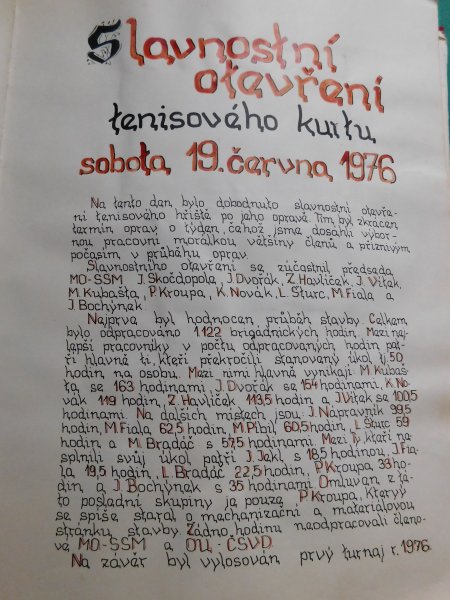 Slavnostní
otevření
tenisového kurtu
sobota 19. června 1976
Na tento den bylo dobodnuto slavnostní otevře-
ní tenisového hřiště po jeho opravě. Tím byl zkrácen
termín oprav o týden, čehož jsme dosáhli výbor-
nou pracovní morálkou většiny členů a příznivým
počasím v průběhu oprav.
Slavnostního otevření se zúčastnil předseda
MO-SSM J. Skočdopola, J. Dvořák, Z. Havlíček, J. Vítek,
M. Kubašta, P. Kroupa, K. Novák, L. Šturc, M. Fiala a
J. Bochýnek
Nejprve byl hodnocen průběh stavby. Celkem
bylo odpracováno 1 122 brigádnických hodin. Mezi nej-
lepší pracovníky v počtu odpracovaných hodin pat-
ří hlavně ti, kteří překročili stanovený úkol tj. 50
hodin na osobu. Mezi nimi hlavně vynikají M. Kubaš-
ta se 163 hodinami, J. Dvořák se 154 hodinami, K. No-
vák 119 hodin, Z. Havlíček 113,5 hodin a J. Vítek se 100,5
hodinami. Na dalších místech jsou: J. Nápravník 99,5
hodin, M. Fiala 62,5 hodin, M. Píbil 60,5 hodin, L. Šturc 59
hodin a M. Bradáč s 57,5 hodinami. Mezi ty kteří ne-
splnili svůj úkol patří J. Jekl s 18,5 hodinou, J. Fia-
la 19,5 hodin, L. Bradáč 22,5 hodin, P. Kroupa 33 ho-
din a J. Bochýnek s 35 hodinami. Omluven z té-
to poslední skupiny je pouze P. Kroupa, který
se spíše staral o mechanizační a materiálovou
stránku stavby. Žádno hodinu neodpracovali členo-
vé MO-SSM a OÚ-ČSVD.
Na závěr byl vylosován prvý turnaj r. 1976.